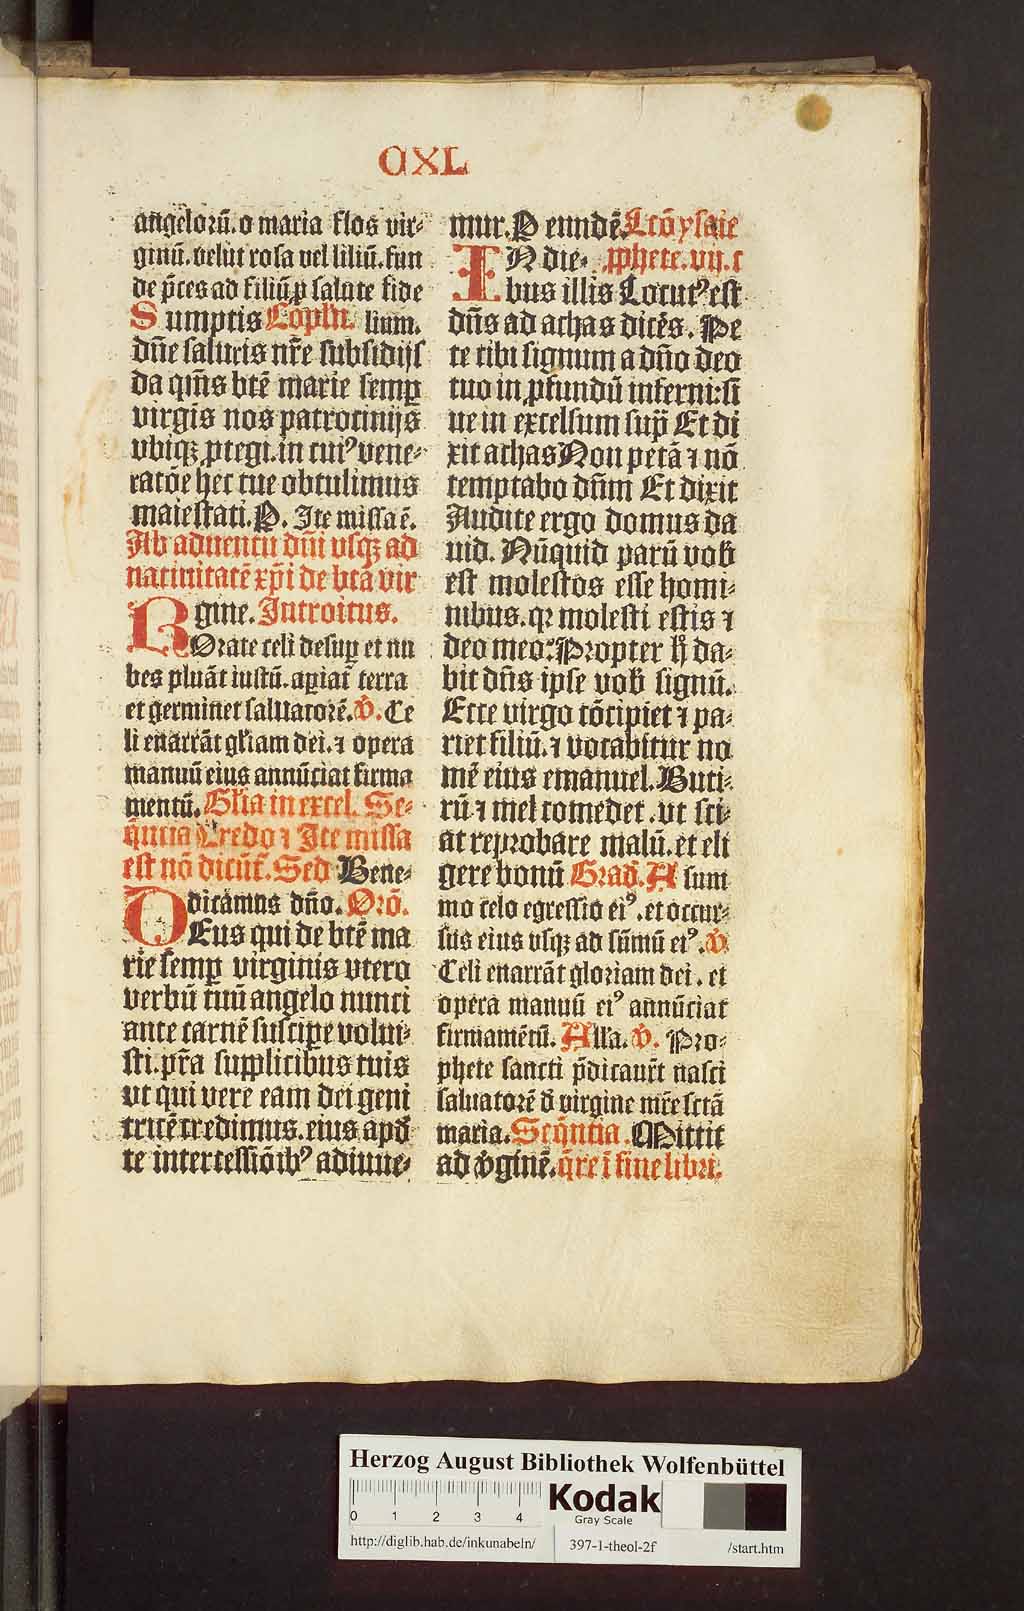 CXL
angeloꝝū. o maria flos vir⸗
ginū. velut rosa vel liliū. fun
de p̄ces ad filiū ꝓ salute fide
Sumptis Cōpln̄. lium.
dn̄e salutis nr̄e subsidijs
da qm̄s btē marie semꝑ
virgīs nos patrocinijs
vbiqꝫ ꝓtegi. in cuiꝰ vene⸗
ratōe hec tue obtulimus
maiestati. P. Ite missa ē.
Ab aduentu dn̄i vsqꝫ ad
natiuitatē xp̄i de btā vir
gine. Introitus.
ROrate celi desuꝑ et nu
bes pluāt iustū. aꝑiat̄ terra
et germinet saluatorē. v̄. Ce
li enarrāt gl̄iam dei. ⁊ opera
manuū eius annūciat firma
mentū. Gl̄ia in excel. Se⸗
q̄ntia Credo ⁊ Ite missa
est nō dicūt̄. Sed Bene⸗
dicamus dn̄o. Orō.
DEus qui de btē ma
rie semꝑ virginis vtero
verbū tuū angelo nunci
ante carnē suscipe volui⸗
sti. pr̄a supplicibus tuis
vt qui vere eam dei geni
tricē credimus. eius apd̄
te intercessiōibꝰ adiuue⸗
mur. P eundē. Lcō ysaie
IN die⸗ ꝓphete. vij. c
bus illis Locutꝰ est
dn̄s ad achas dicēs. Pe
te tibi signum a dn̄o deo
tuo in ꝓfundū inferni: si
ue in excelsum sup̄ Et di
xit achas Non petā ⁊ nō
temptabo dn̄m Et dixit
Audite ergo domus da
uid. Nūquid parū vob̄
est molestos esse homi⸗
nibus. qꝛ molesti estis ⁊
deo meo? Propter h̄ da⸗
bit dn̄s ipse vob̄ signū.
Ecce virgo cōcipiet ⁊ pa⸗
riet filiū. ⁊ vocabitur no
mē eius emanuel. Buti⸗
rū ⁊ mel comedet. vt sci⸗
at reprobare malū. et eli
gere bonū Grad̄. A sum
mo celo egressio eiꝰ. et occur⸗
sus eius vsqꝫ ad sūmū eiꝰ. v̄
Celi enarrāt gloriam dei. et
opera manuū eiꝰ annūciat
firmamētū. All̄a. v̄. Pro⸗
phete sancti p̄dicauer̄t nasci
saluatorē d̄ virgine mr̄e sctā
maria. Seq̄ntia. Mittit
ad v̄ginē. q̄re ī fine libri.
Herzog August Bibliothek Wolfenbüttel
0 1 2 3 4
Kodak
Gray Scale
http://diglib.hab.de/inkunabeln/ 397-1-theol-2f /start.htm